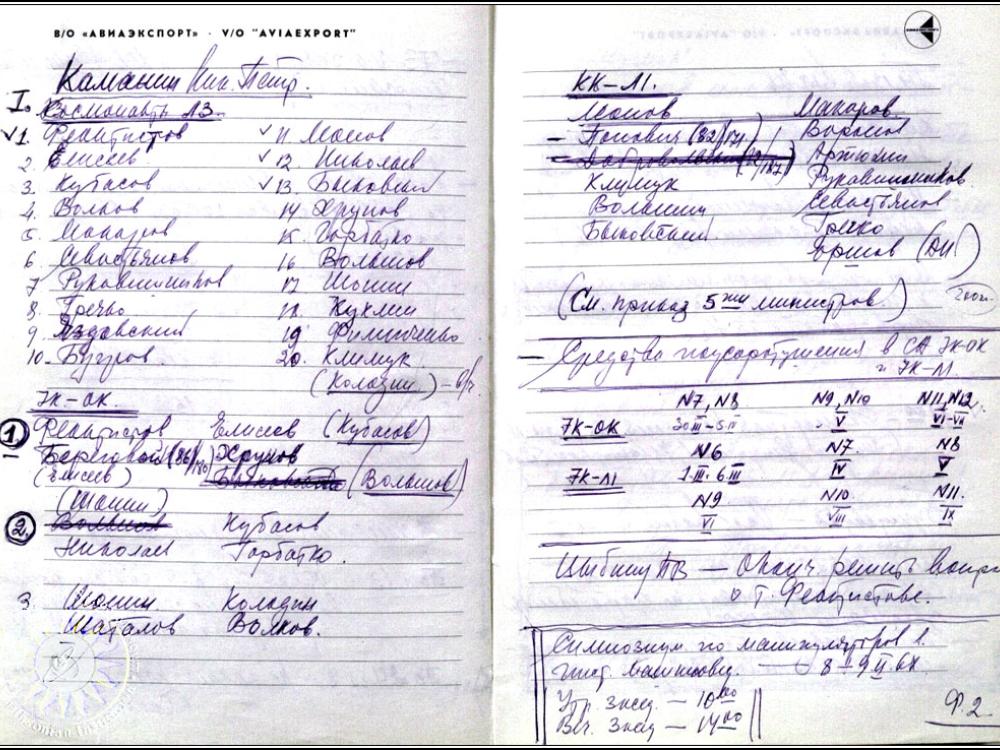 В/О «АВИАЭКСПОРТ» · V/O "AVIAEXPORT"
Каманин Ник. Петр.
I. Космонавты Л3.
✓1. Феоктистов
2. Елисеев
3. Кубасов
4. Волков
5. Макаров
6 Севастьянов
7 Рукавишников
8. Гречко
9. Яздовский
10. Бугров
✓ 11 Леонов
✓ 12. Николаев
✓ 13. Быковский
14 Хрунов
15. Горбатко
16 Волынов
17 Шонин
18. Куклин
19 Филипченко
20. Климук
(Колодин) –
7К-ОК.
1. Феоктистов Елисеев (Кубасов)
Береговой (86/180) Хрунов
(Елисеев) (Волынов)
(Шонин)
2. Волынов Кубасов
Николаев Горбатко
3. Шонин Колодин
Шаталов Волков.
КК-Л1.
Леонов Макаров
– Попович (82/171) Воронов
Добровольский Артюхин
Климук Рукавишников
Волынов Севастьянов
Быковский Гречко
Ершов (ДИ.)
(См. приказ 5ти министров.)
– Средства пожаротушения в СА 7К-ОК
и 7К-Л1.
N7, N8 N9, N10 N11, N12
7К-ОК 30 III - 5 IV V VI-VII
N6 N7 N8
7К-Л1 1 III. 6 III IV V
N9 N10 N11.
VI VIII IX
Цыбину ПВ — решить вопр
о т. Феоктистове.
Симпозиум по манипуляторов 1.
— 8-9 II 6X
Утр. засед. — 10 00
Веч. засед — 14 00
Ф.2